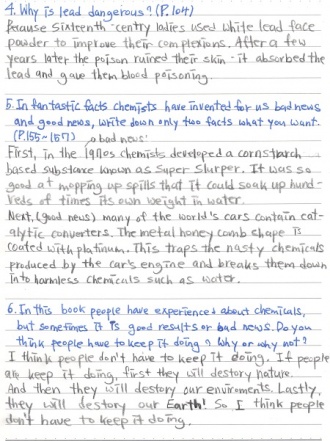 4. Why is lead dangerous? (P.104)
Because sixteenth-centry ladies used white lead face
powder to improve their complexions. After a few
years later the poison ruined their skin - it absorbed the
lead and gave them blood poisoning.
5. In fantastic facts chemists have invented for us bad news
and good news, write down only two facts what you want.
(P.155~157)
bad news
First, in the 1970s chemists developed a cornstarch
based substance known as Super Slurper. It was so
good at mopping up spills that it could soak up hund-
reds of times its own weight in water.
Next, (good news) many of the world's cars contain cat-
alytic converters. The metal honey comb shape is
coated with platinum. This traps the nasty chemicals
produced by the car's engine and breaks them down
into harmless chemicals such as water.
6. In this book people have experienced about chemicals,
but sometimes it is good results or bad news. Do you
think people have to keep it doing? Why or why not?
I think people don't have to keep it doing. If people
are keep it doing, first they will destory nature.
And then they will destory our enviroments. Lastly,
they will destory our Earth! So I think people
don't have to keep it doing.